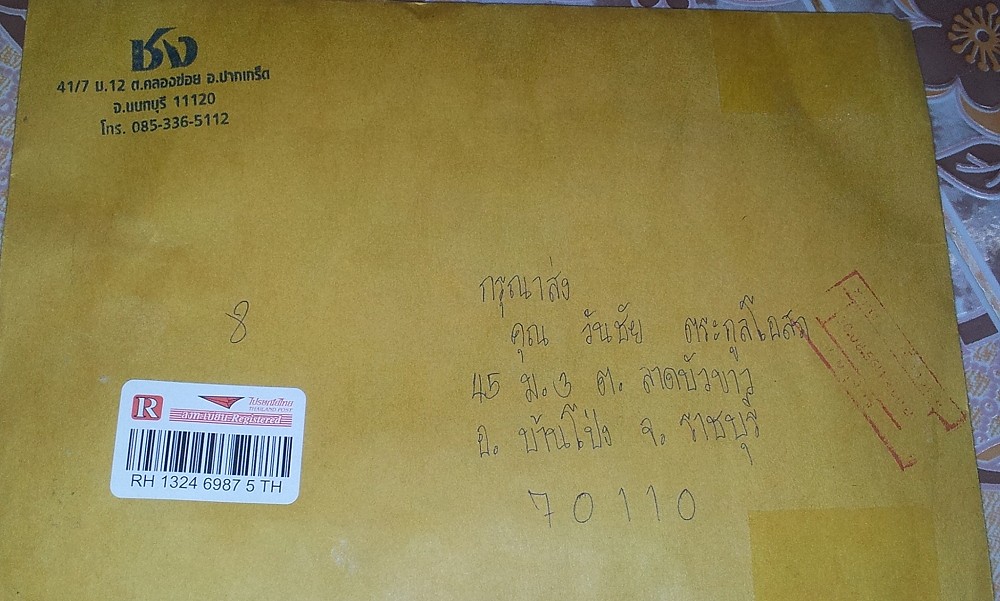 ชง
41/7 ม.12 ต.คลองข่อย อ.ปากเกร็ด
จ.นนทบุรี 11120
โทร. 085-336-5112
กรุณาส่ง
คุณ วันชัย ตระกูลโอสถ
45 ม.3 ต. ลาดบัวขาว
อ. บ้านโป่ง จ. ราชบุรี
70110
8
R ไปรษณีย์ไทย
THAILAND POST
ลงทะเบียน Registered
RH 1324 6987 5 TH